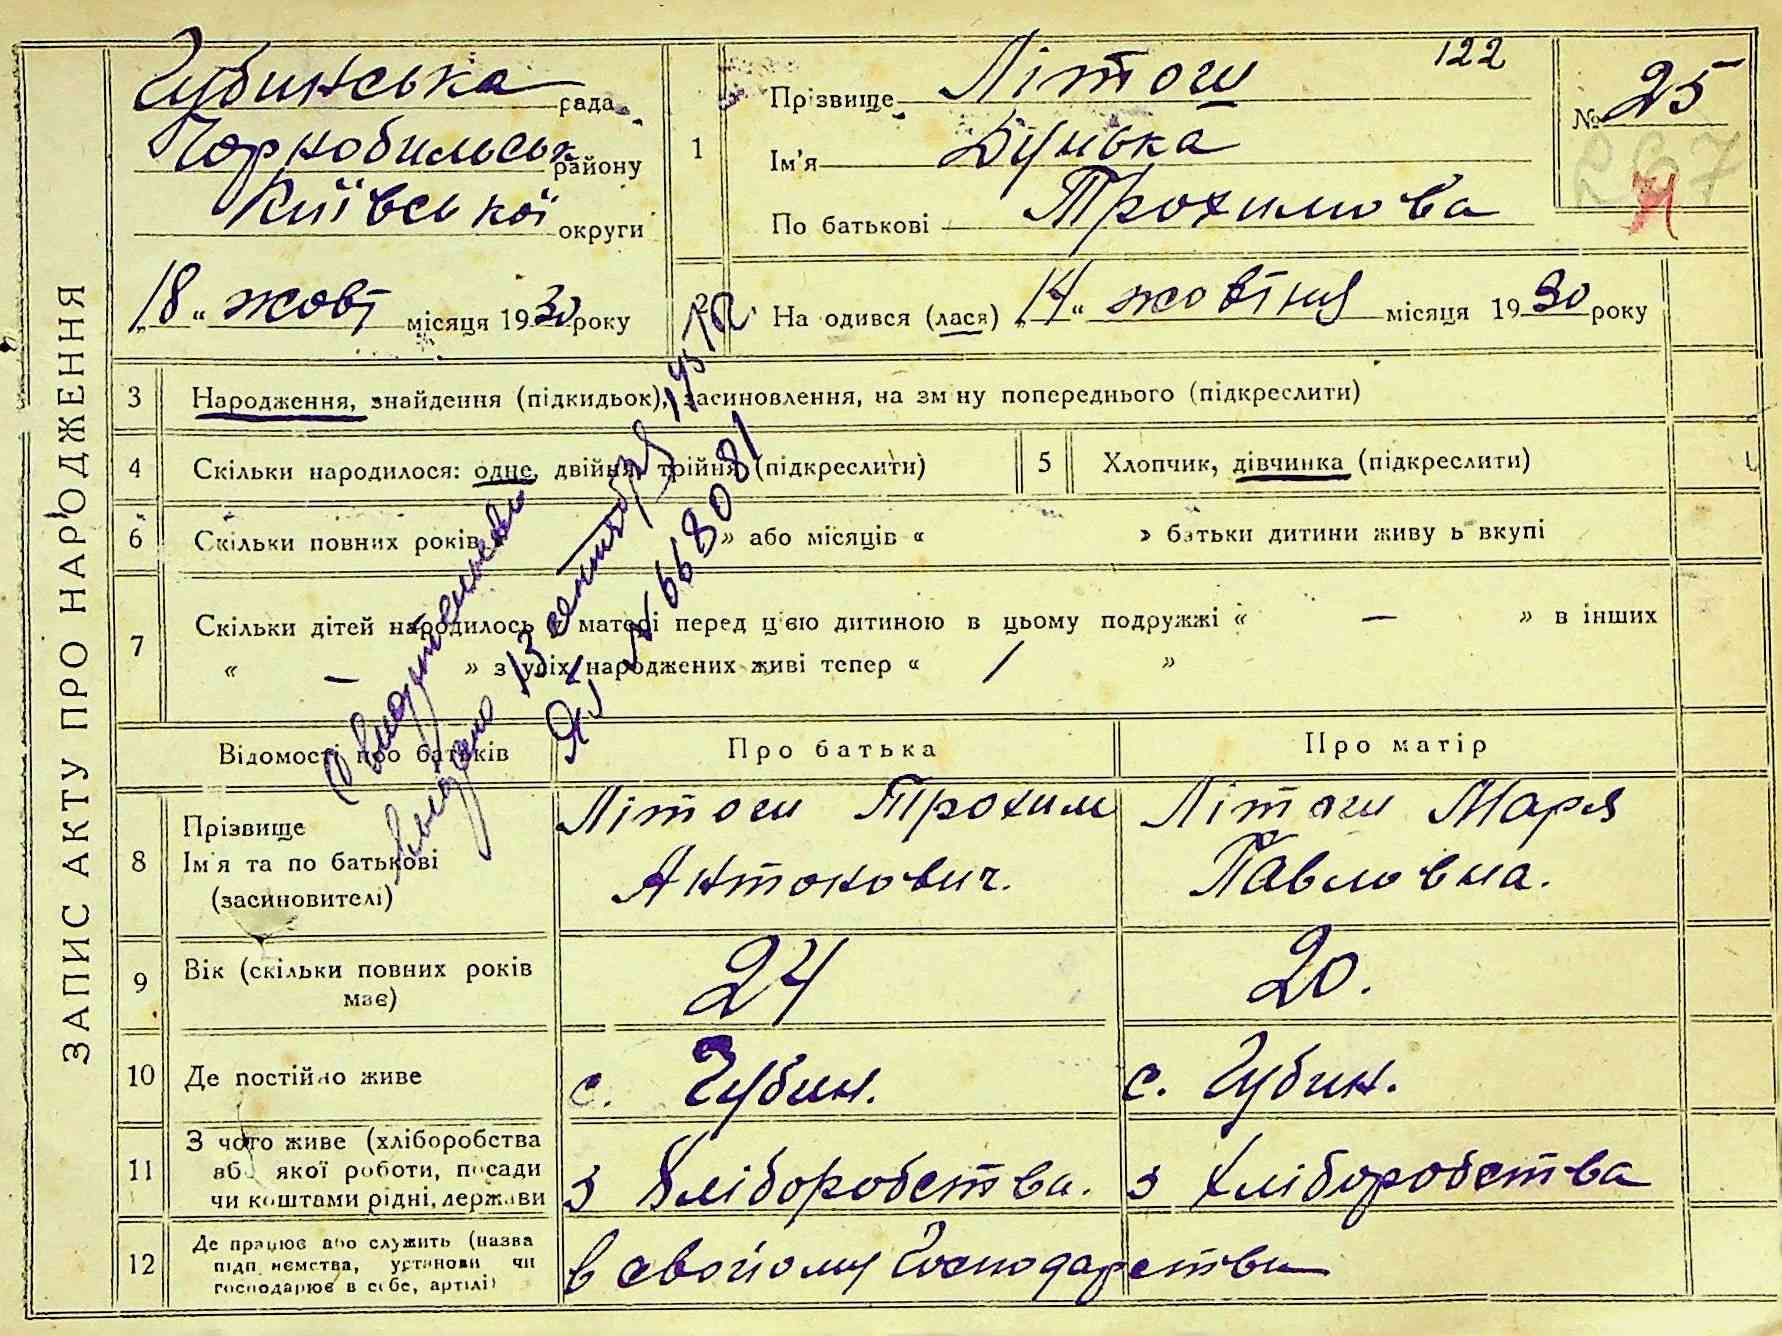 ЗАПИС АКТУ ПРО НАРОДЖЕННЯ
Губинська рада
Чорнобильськ району
Київської округи
„18“ жовт місяця 1930 року
122
1 Прізвище Літош
Ім'я Дунька
По батькові Трохимова
№ 25
267
На одився (лася) „14“ жовтня місяця 1930 року
3 Народження, знайдення (підкидьок), засиновлення, на зм ну попереднього (підкреслити)
4 Скільки народилося: одне, двійня, трійня (підкреслити)
5 Хлопчик, дівчинка (підкреслити)
6 Скільки повних років » або місяців « » батьки дитини живу ь вкупі
7 Скільки дітей народилось у матері перед цією дитиною в цьому подружжі « — » в інших
« — » з усіх народжених живі тепер « 1 »
выдано 13 сентября 195
№ 668081
Відомості про батьків
Про батька
Про матір
8 Прізвище
Ім'я та по батькові
(засиновителі)
Літош Трохим
Антонович.
Літош Маря
Павловна.
9 Вік (скільки повних років
має)
24
20.
10 Де постійно живе
с. Губин.
с. Губин.
11 З чого живе (хліборобства
або якої роботи, посади
чи коштами рідні, держави
з хліборобства.
з хліборобства
12 Де працює або служить (назва
підп иємства, установи чи
господарює в себе, артілі)
в свойому господарстви